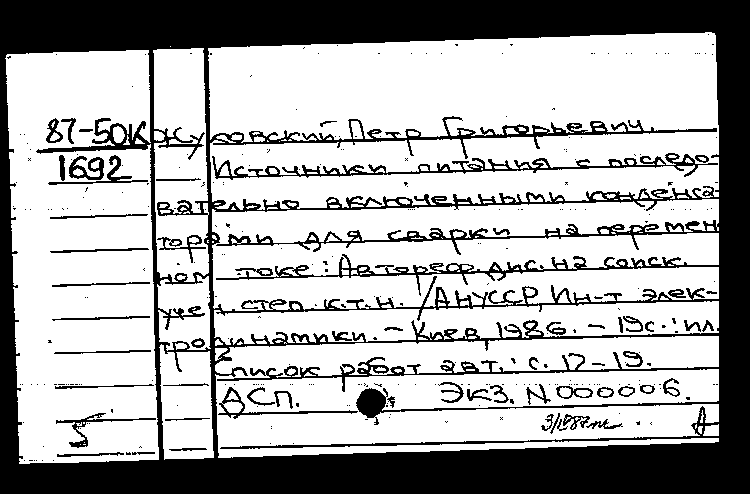 87-50К Жуковский, Петр Григорьевич.
1692 Источники питания с последо-
вательно включенными конденса-
торами для сварки на перемен
ном токе: Автореф. дис. на соиск.
учен. степ. к.т.н. / АН УССР, Ин-т элек-
тродинамики. - Киев, 1986. - 19с.: ил.
Список работ авт.: с. 17-19.
ДСП. ЭКЗ. N000006.
5
А